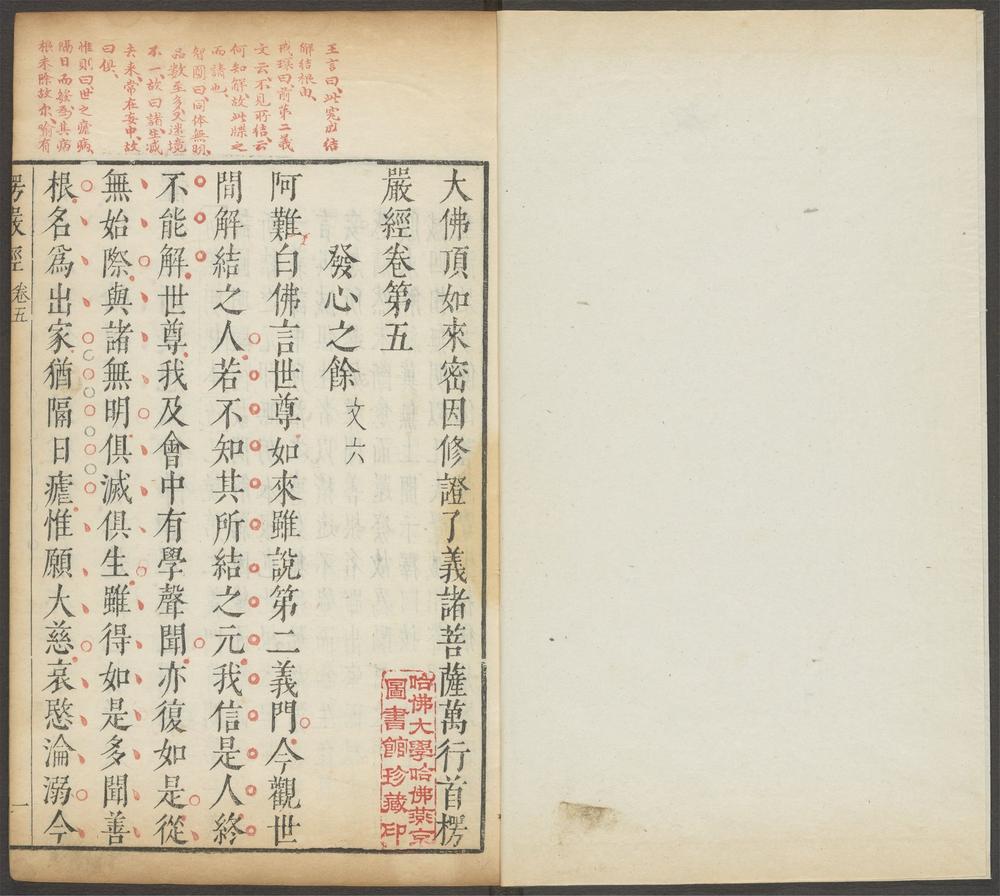 王言曰、此究成結
解結根由、
戒環曰前第二義
文云、不見所結、云
何知解、故此牒之
而請也、
智圓曰、同体無明、
品數至多、又迷境
不一、故曰諸、生滅
去来、常在妄中、故
曰俱、
惟則曰、世之瘧病、
隔日而發、為其病
根未除故尔、喻有
大佛頂如來密因修證了義諸菩薩萬行首楞
嚴經卷第五
發心之餘 文六
阿難白佛言世尊如來雖說第二義門今觀世
間解結之人若不知其所結之元我信是人終
不能解世尊我及會中有學聲聞亦復如是從
無始際與諸無明俱滅俱生雖得如是多聞善
根名爲出家猶隔日瘧惟願大慈哀愍淪溺今
楞嚴經 卷五
一
哈佛大學哈佛燕京
圖書館珍藏印